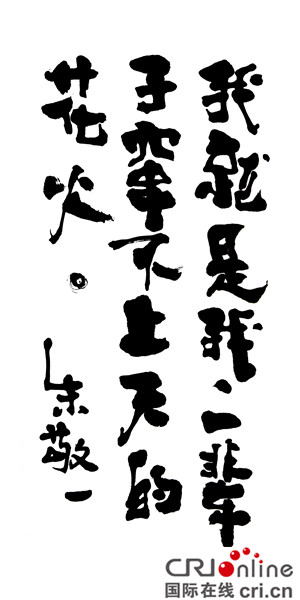 我就是我、一辈
子窜不上天的
花火。
朱敬一
CRIOnline
国际在线 cri.cn